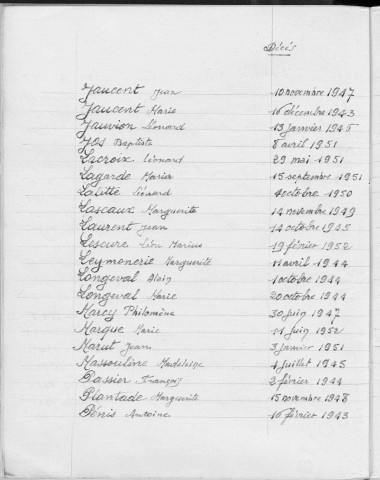 Décès
Jaucent Jean 10 novembre 1947
Jaucent Marie 16 décembre 1943
Jauvion Léonard 13 janvier 1946
Jos Baptiste 8 avril 1951
Lacroix Léonard 29 mai 1951
Lagarde Marier 15 septembre 1951
Lalitte Léonard 4 octobre 1950
Lascaux Marguerite 14 novembre 1949
Laurent Jean 14 octobre 1945
Lescure Léon Marius 19 février 1952
Leymonerie Marguerite 11 avril 1944
Longeval Alain 1 octobre 1944
Longeval Marie 20 octobre 1944
Marcy Philomène 30 juin 1947
Marque Marie 11 juin 1952
Marut Jean 3 janvier 1951
Massouline Madeleine 4 juillet 1945
Passier François 2 février 1944
Plantade Marguerite 15 novembre 1948
Pénis Antoine 16 février 1943